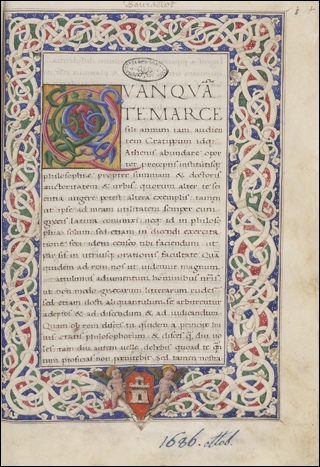 Bourdelot
QVANQVÃ
TE MARCE
fili annum iam audien
tem Cratippum idq;
Athenis abundare opor
tet preceptis institutisq;
philosophie propter summam & doctoris
auctoritatem & urbis quorum alter te sci
entia augere potest altera exemplis: tamen
ut ipse ad meam utilitatem semper cum
grecis latina coniunxi neq; id in philoso
phia solum sed etiam in dicendi exercita
tione feci idem censeo tibi faciendum ut
par sis in utriusq; orationis facultate. Quã
quidem ad rem nos ut uidemur magnum
attulimus adiumentum hominibus nr̃is
ut non modo grecarum litterarum rudes
sed etiam docti aliquantum se arbitrentur
adeptos & ad discendum & ad iudicandum
Quam ob rem disces tu quidem a principe hui
us etatis philosophorum & disces q̃ diu uo
les: tam diu autem uelle debebis quoad te quã
tum proficias non penitebit. Sed tamen nostra
1686. ottob.